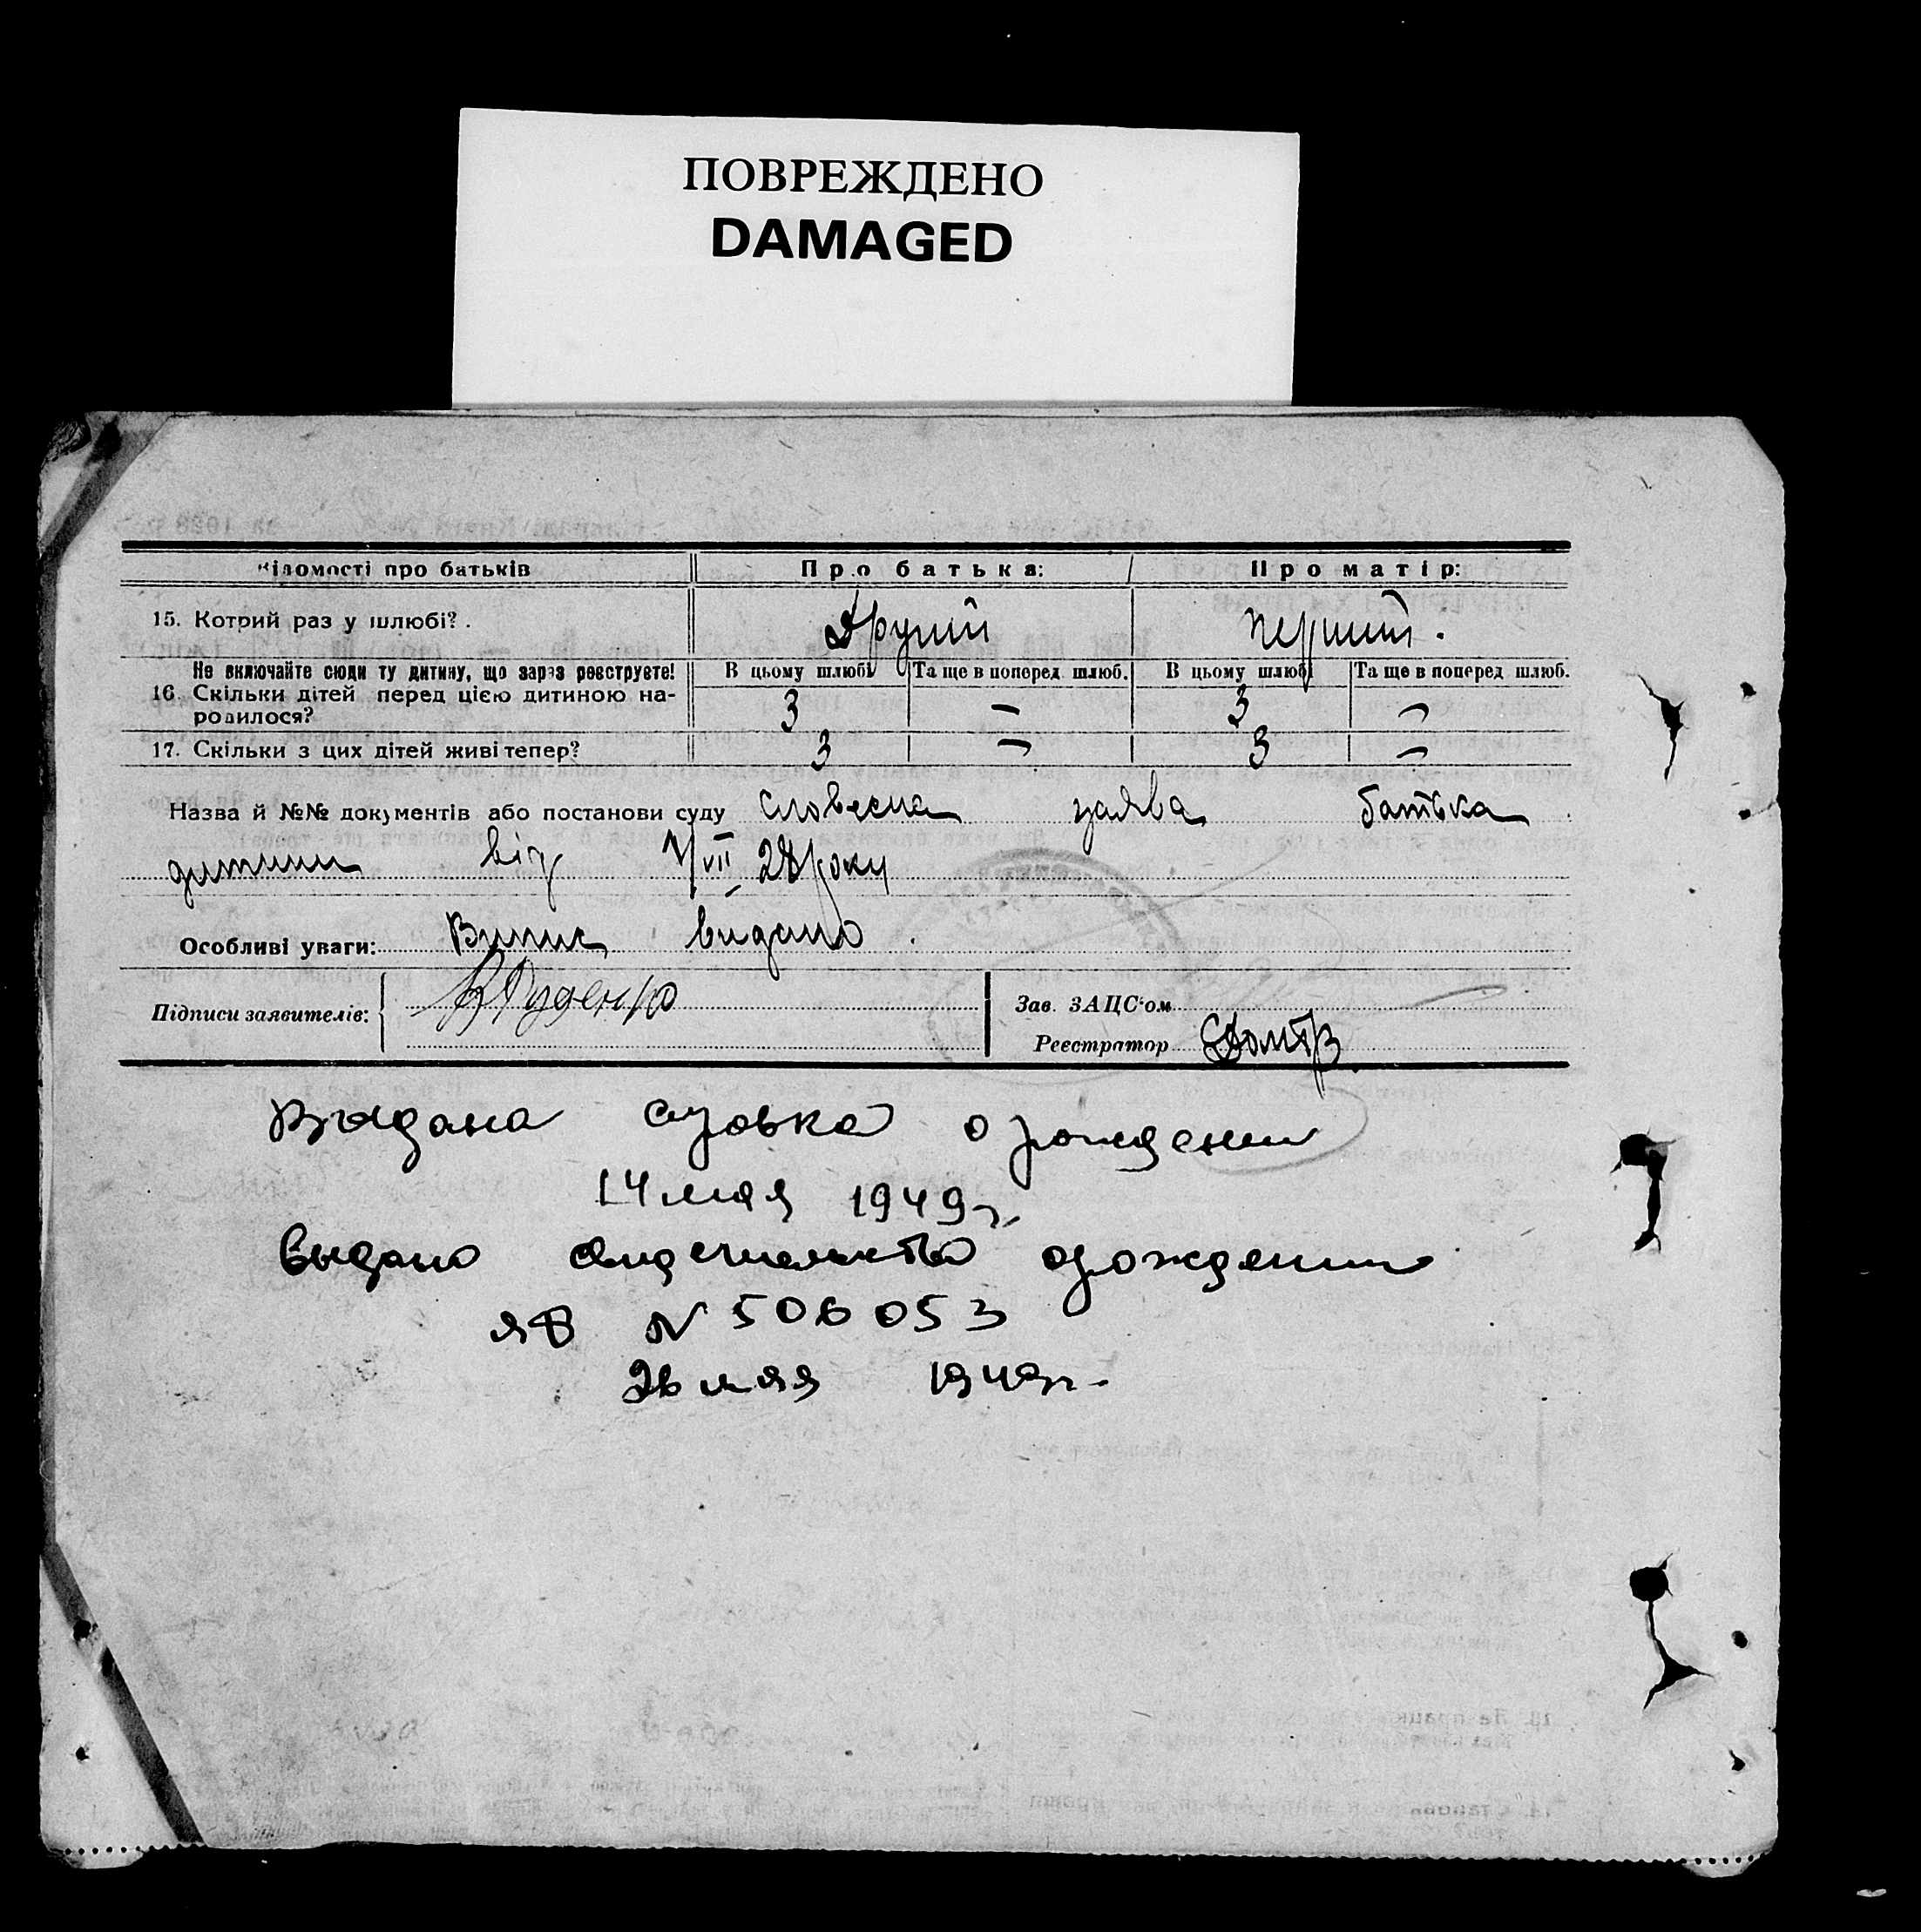 ПОВРЕЖДЕНО
DAMAGED
Відомості про батьків Про батька: Про матір:
15. Котрий раз у шлюбі? Другий перший.
Не включайте сюди ту дитину, що зараз реєструєте! В цьому шлюбі Та ще в поперед. шлюб. В цьому шлюбі Та ще в поперед шлюб.
16. Скільки дітей перед цією дитиною на- 3 — 3 —
родилося?
17. Скільки з цих дітей живі тепер? 3 — 3 —
Назва й №№ документів або постанови суду словесна заява батька
дитини від 1/VII 28 року
Особливі уваги: Випис видано.
Підписи заявителів: Руденко Зав. ЗАЦС'ом
Реєстратор
Выдана справка о рождении
14 мая 1949г.
Выдано свидетельство о рождении
ЯВ N 506053
26 мая 1949г.